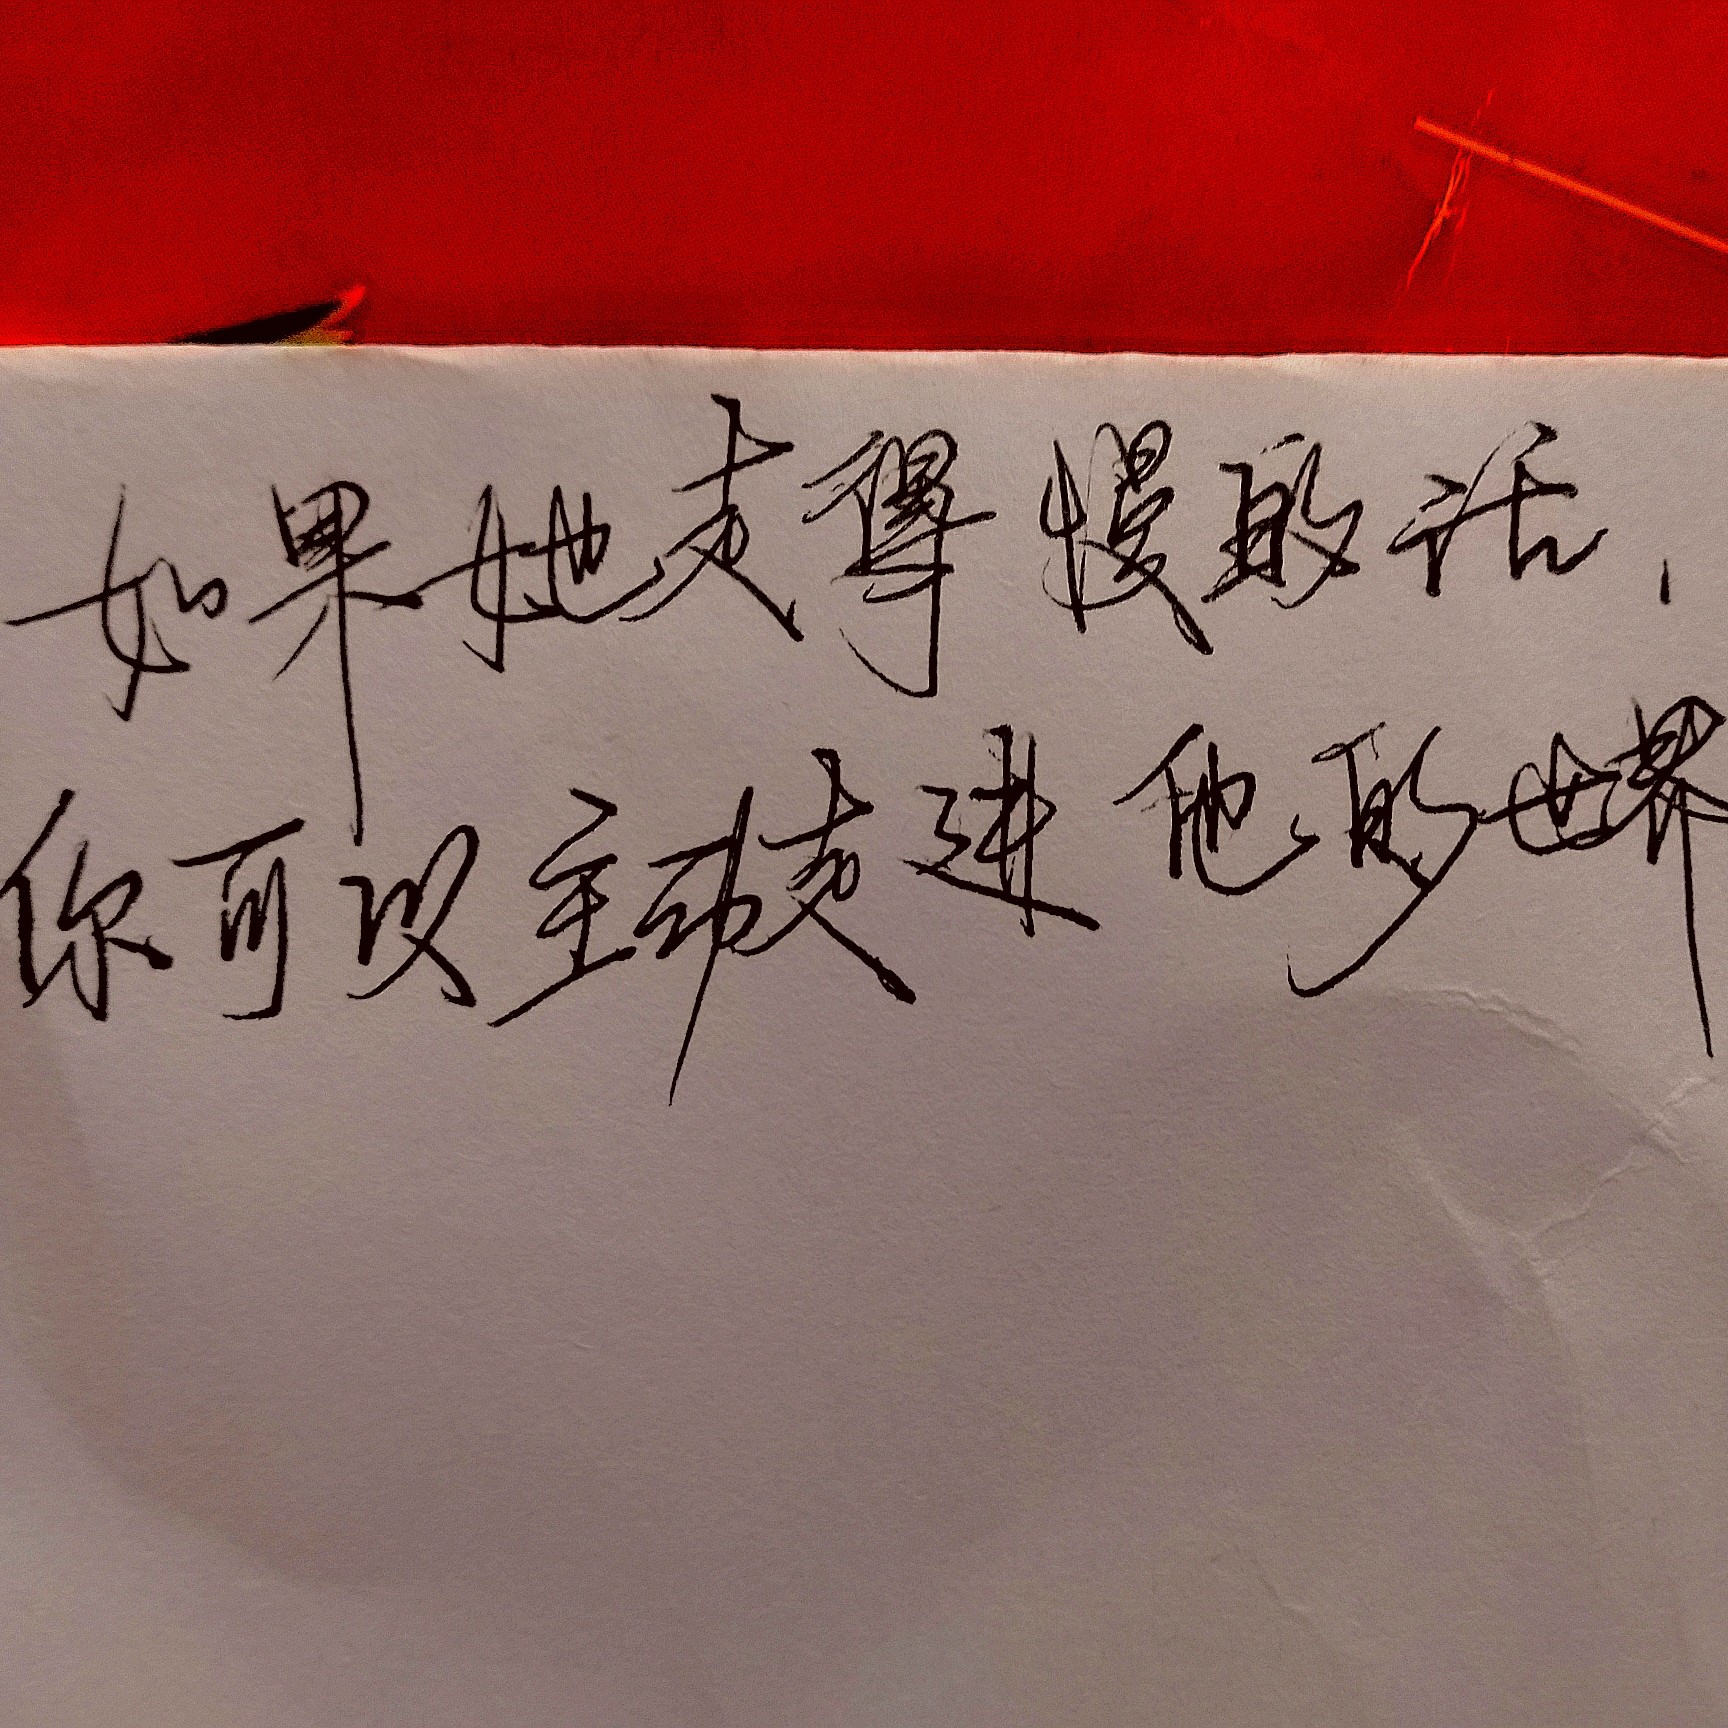 如果她走得慢的话,
你可以主动走进他的世界